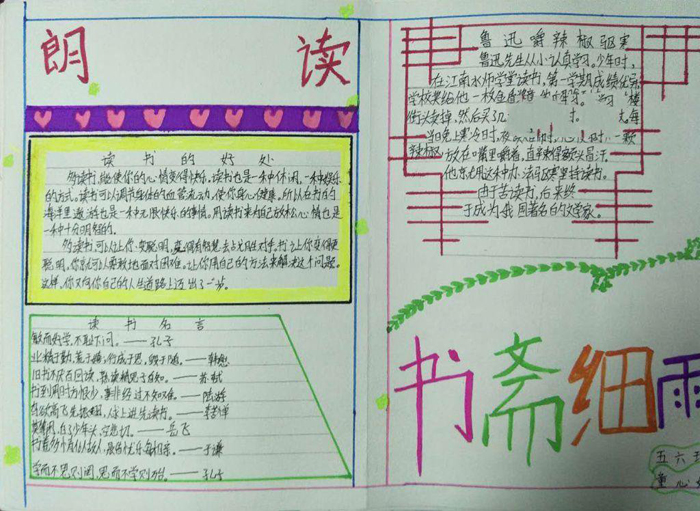 朗 读
读书的好处
多读书,能使你的心情变得快乐。读书也是一种休闲,一种娱乐
的方式。读书可以调节身体的血管流动,使你身心健康。所以在书的
海洋里遨游也是一种无限快乐的事情。用读书来为自己放松心情也是
一种十分明智的。
多读书,可以让你变聪明,变得有智慧去战胜对手。书让你变得更
聪明,你就可以勇敢地面对困难。让你用自己的方法来解决这个问题。
这样,你又向你自己的人生道路上迈出了一步。
读书名言
敏而好学,不耻下问。——孔子
业精于勤,荒于嬉,行成于思,毁于随。——韩愈
旧书不厌百回读,熟读精思子自知。——苏轼
书到用时方恨少,事非经过不知难。——陆游
——李苦禅
莫等闲,白了少年头,空悲切。——岳飞
——于谦
学而不思则罔,思而不学则殆。——孔子
鲁迅嚼辣椒驱寒
鲁迅先生从小认真学习。少年时,
在江南水师学堂读书,第一学期成绩优异,
学校奖给他一枚金
街头卖掉,然后买了几
每当晚上寒冷时,夜 一颗
辣椒,放在嘴里嚼着,直辣得额头冒汗。
他就用这种办法驱寒坚持读书。
由于苦读书,后来终
于成为我国著名的文学家。
书斋细雨
五六班
童心